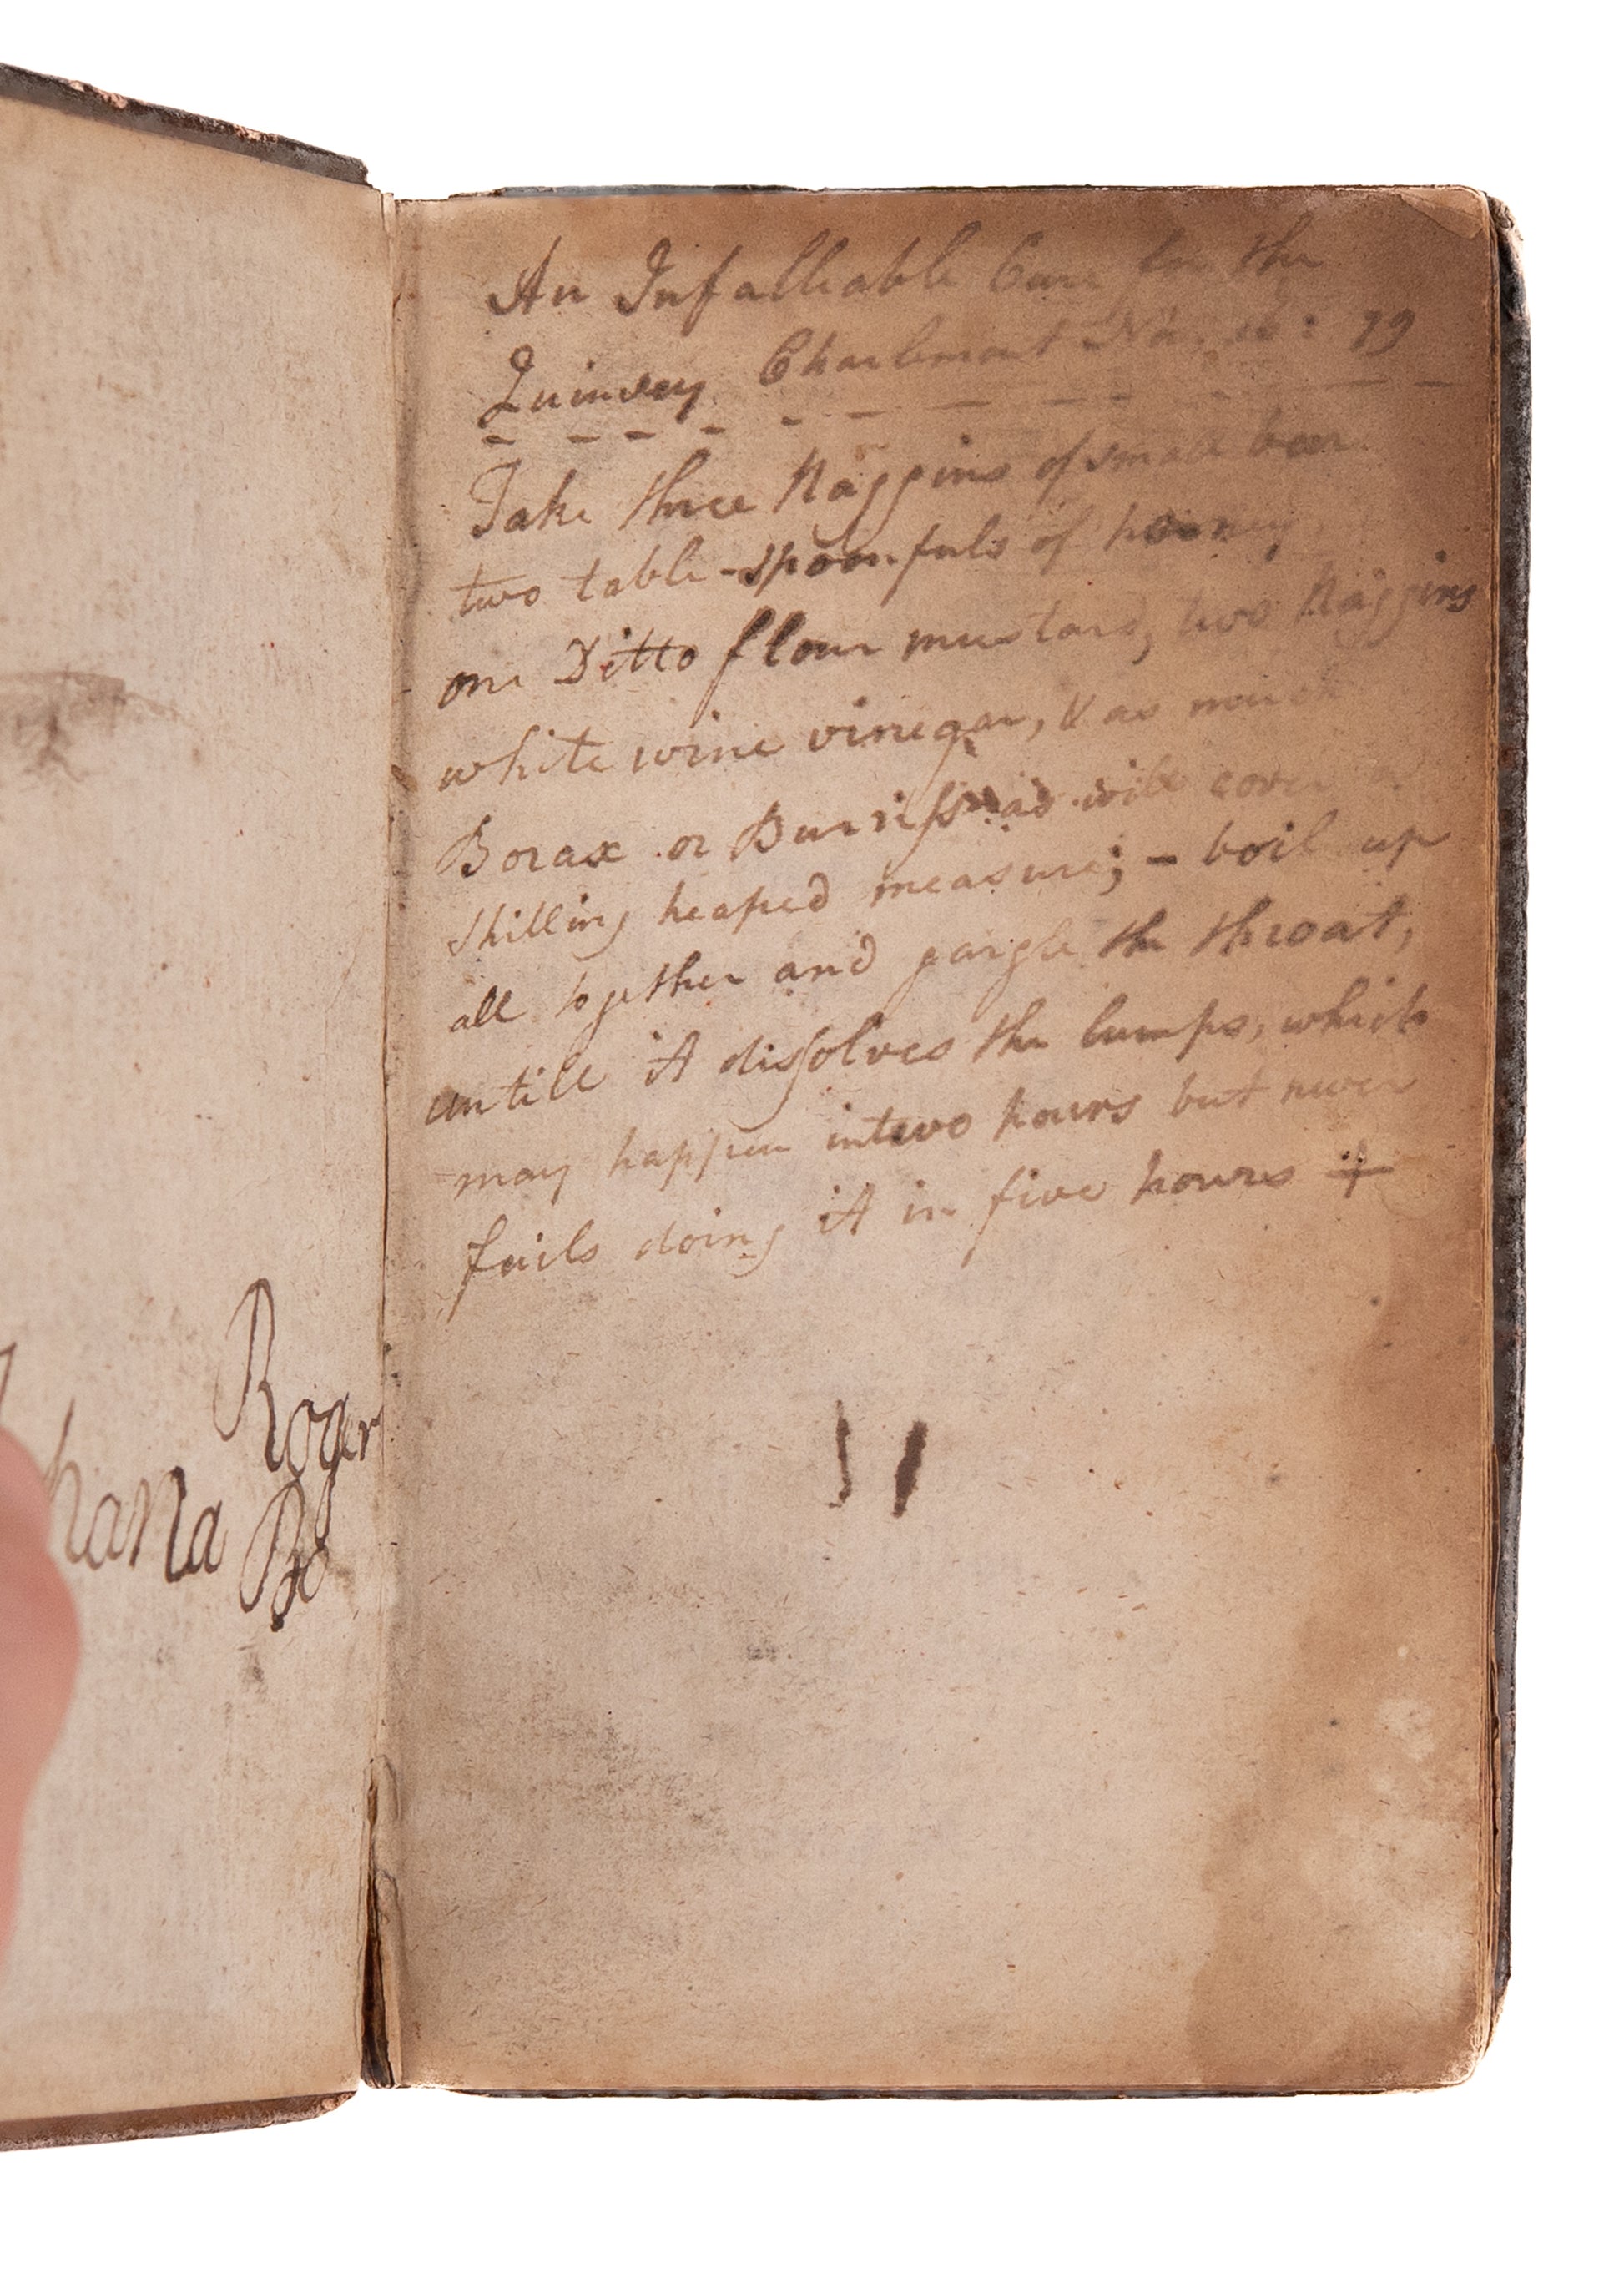 Roger
hana Bo
An Infalliable Cure for the
Quinsey Charlemont 79
Take three Naggins of small beer
two table-spoonfuls of honney,
one Ditto flour mustard, two Naggins
white wine vinegar, & as much
Borax or will cover a
shilling heaped measure; - boil up
all together and gargle the throat,
untill it dissolves the lumps, which
may happen in two hours but never
fails doing it in five hours